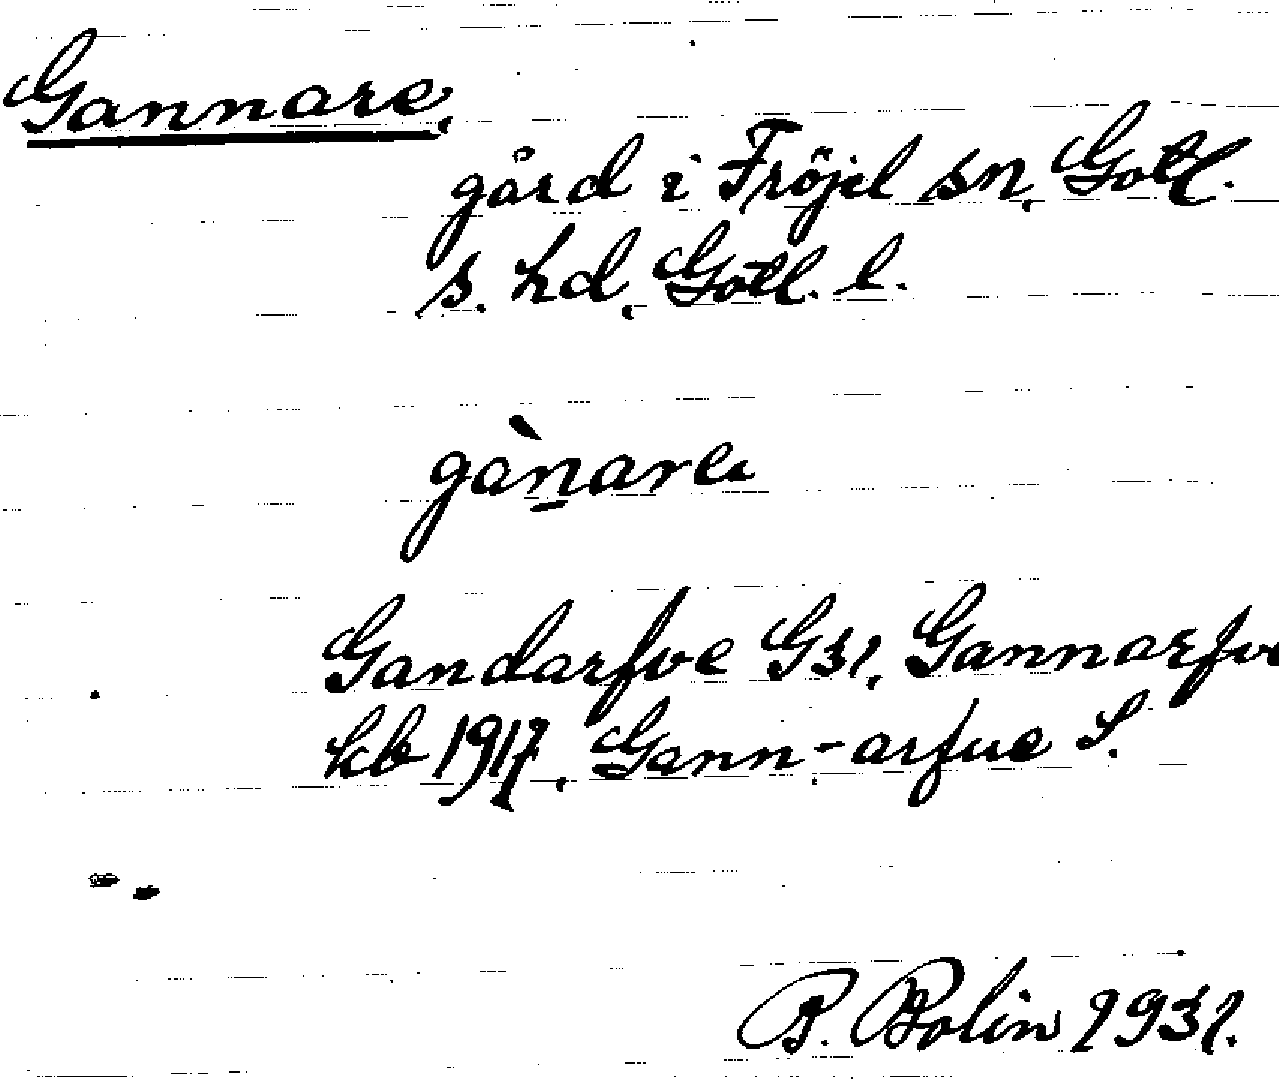 Gannare,
gård i Fröjel sn, Gotl.
s. hd, Gotl. l.
gàn̠are
Gandarfve G31, Gannarfve
kb 1917, Gann-arfue S.
P. Bolin 1931.